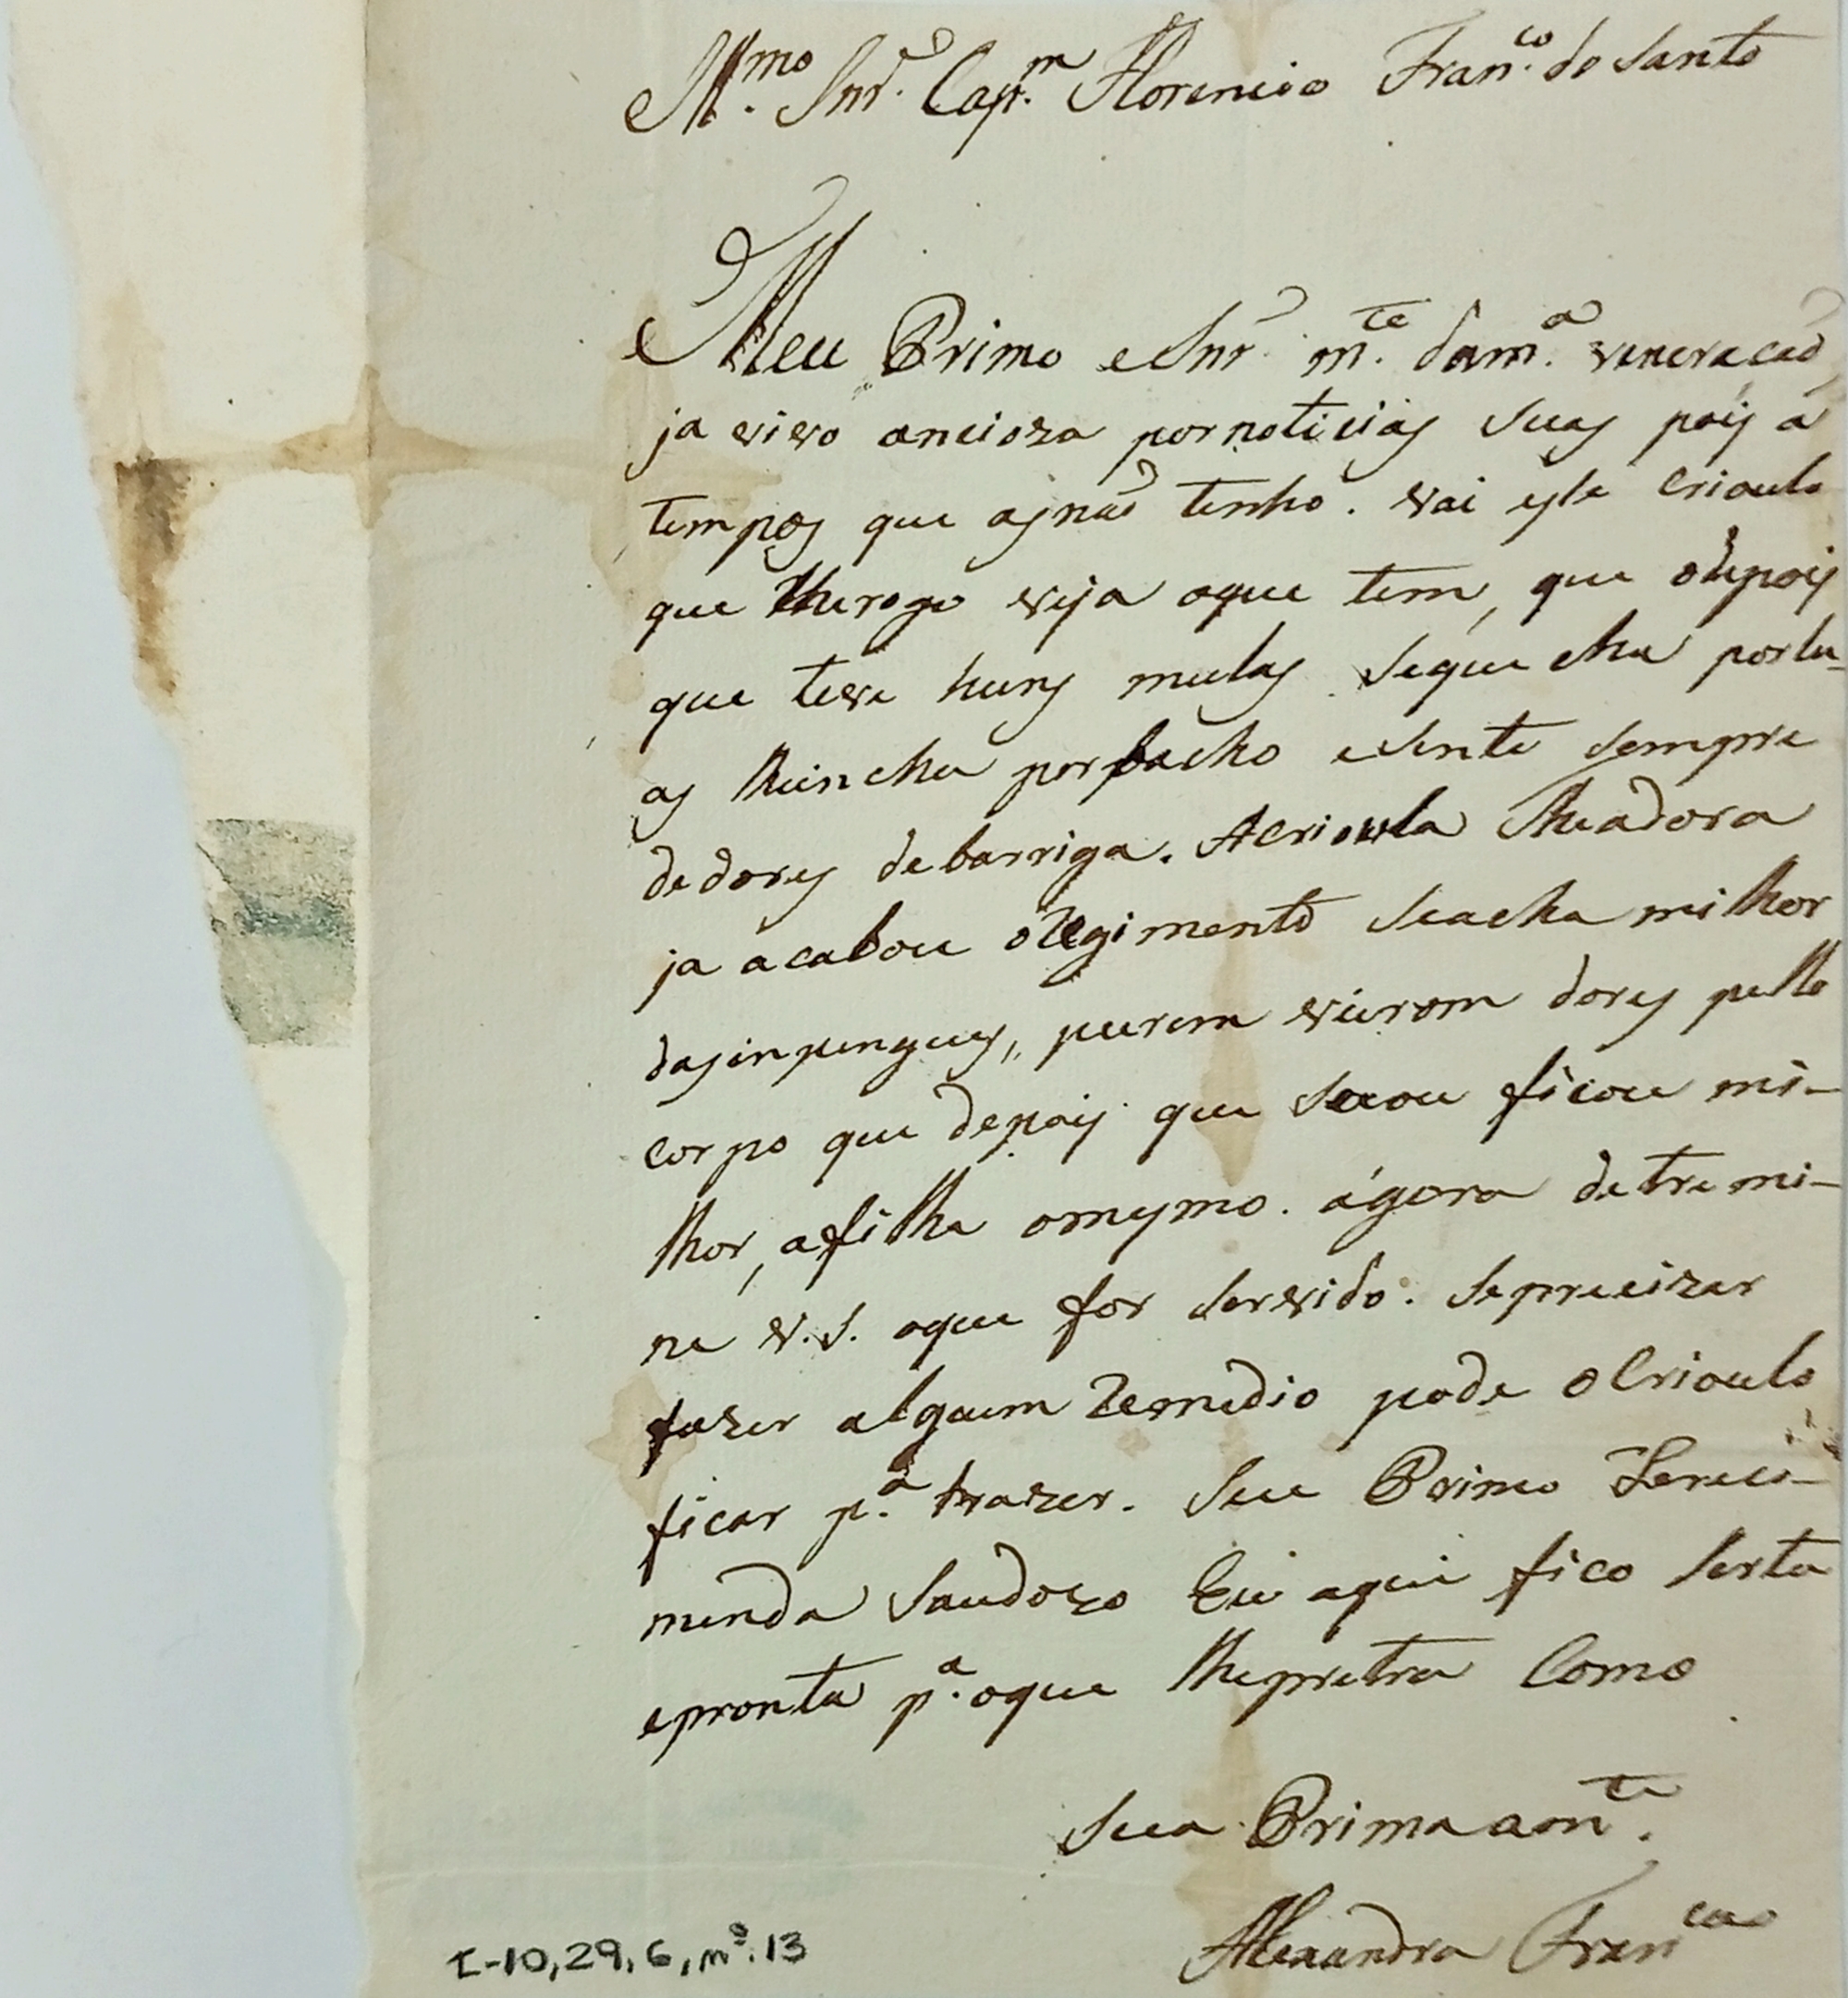 Illmo. Snr. Capm. Florencio Franco. do Santo
Meu Primo e Snr. mte. dama. veneracaõ
ja vivo ancioza por noticias Suas pois a
tempos que as naõ tenho. vai este crioulo
que lhe rogo veja oque tem, que odepois
que teve huns mulas Seque cha por lu-
as lhe incha por bacho e Sente Sempre
de dores de barriga. A Crioula Theadora
ja acabou o Regimento Seacha milhor
das inpenguês, purem vierom dores pello
corpo que depois que Suou ficou mi-
lhor, afilha omesmo. ágora detremi-
ne V.S. oque for Servido. Sepreeizar
fazer algum Remedio pode o Crioulo
ficar pa. trazer. Seu Primo Serecó-
menda Saudozo Eu aqui fico Serta
epronta pa. oque lhe prestra Como
Sua Prima amte.
Alexandra Franca
I-10,29,6, nº. 13